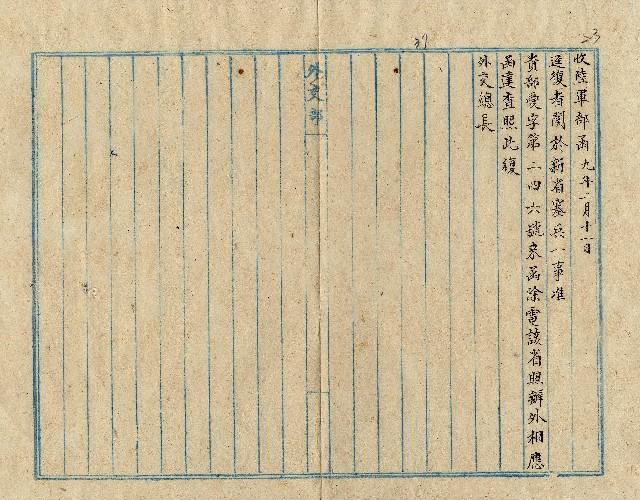 23
37
收陸軍部函九年二月十一日
逕復者關於新省募兵一事准
貴部愛字第二四六號來函除電該省照辦外相應
函達查照此復
外交總長
外交部